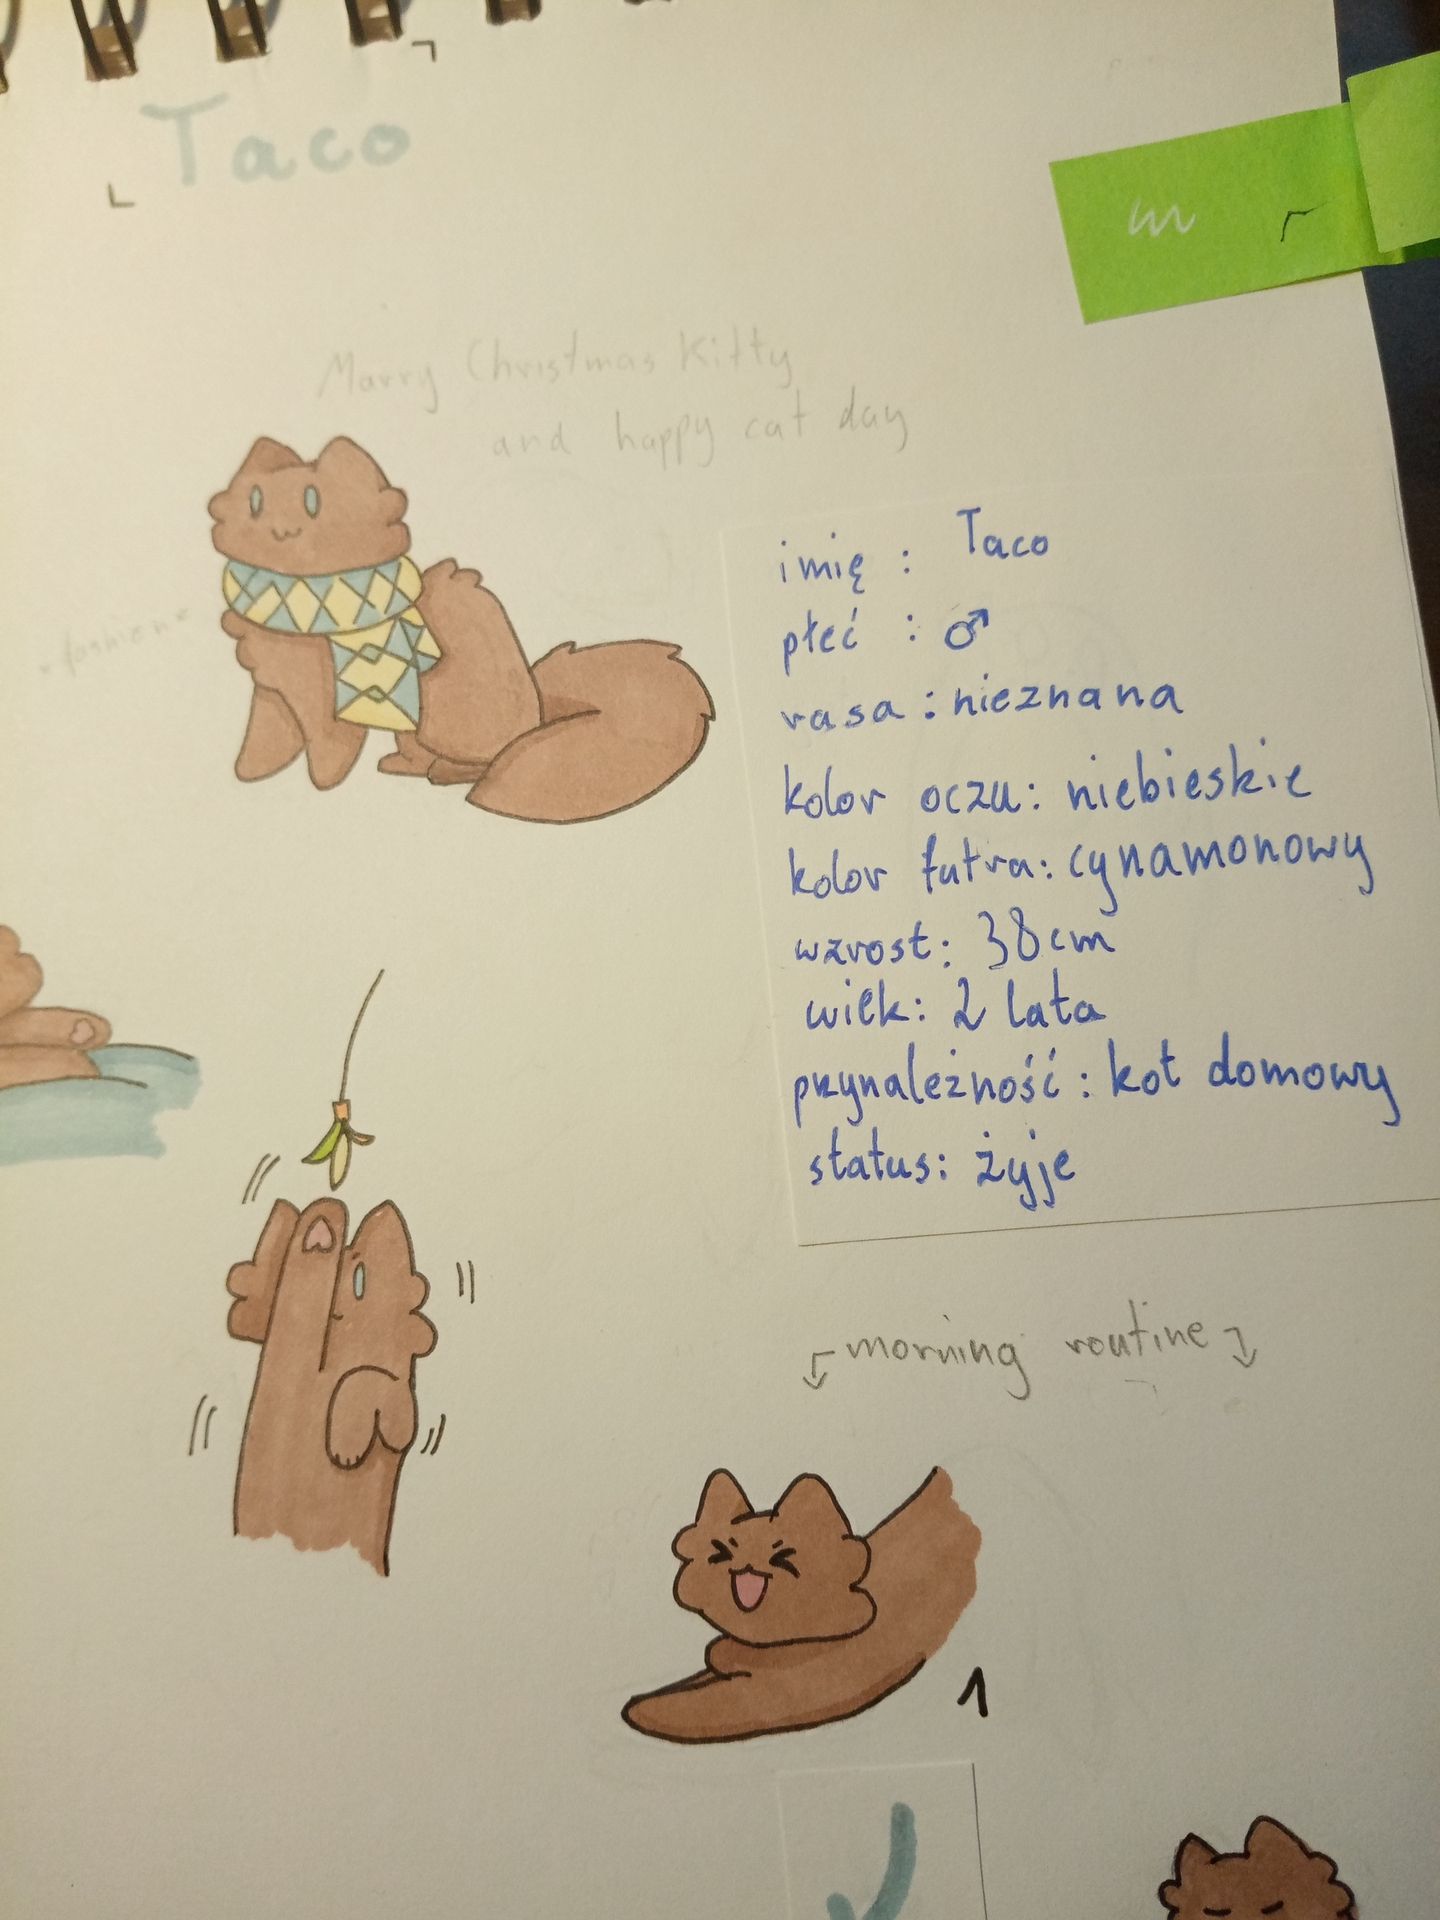 Taco
Marry Christmas Kitty
and happy cat day
imię : Taco
płeć : ♂
rasa : nieznana
kolor oczu: niebieskie
kolor futra: cynamonowy
wzrost: 38cm
wiek: 2 lata
przynależność : kot domowy
status: żyje
morning routine
1